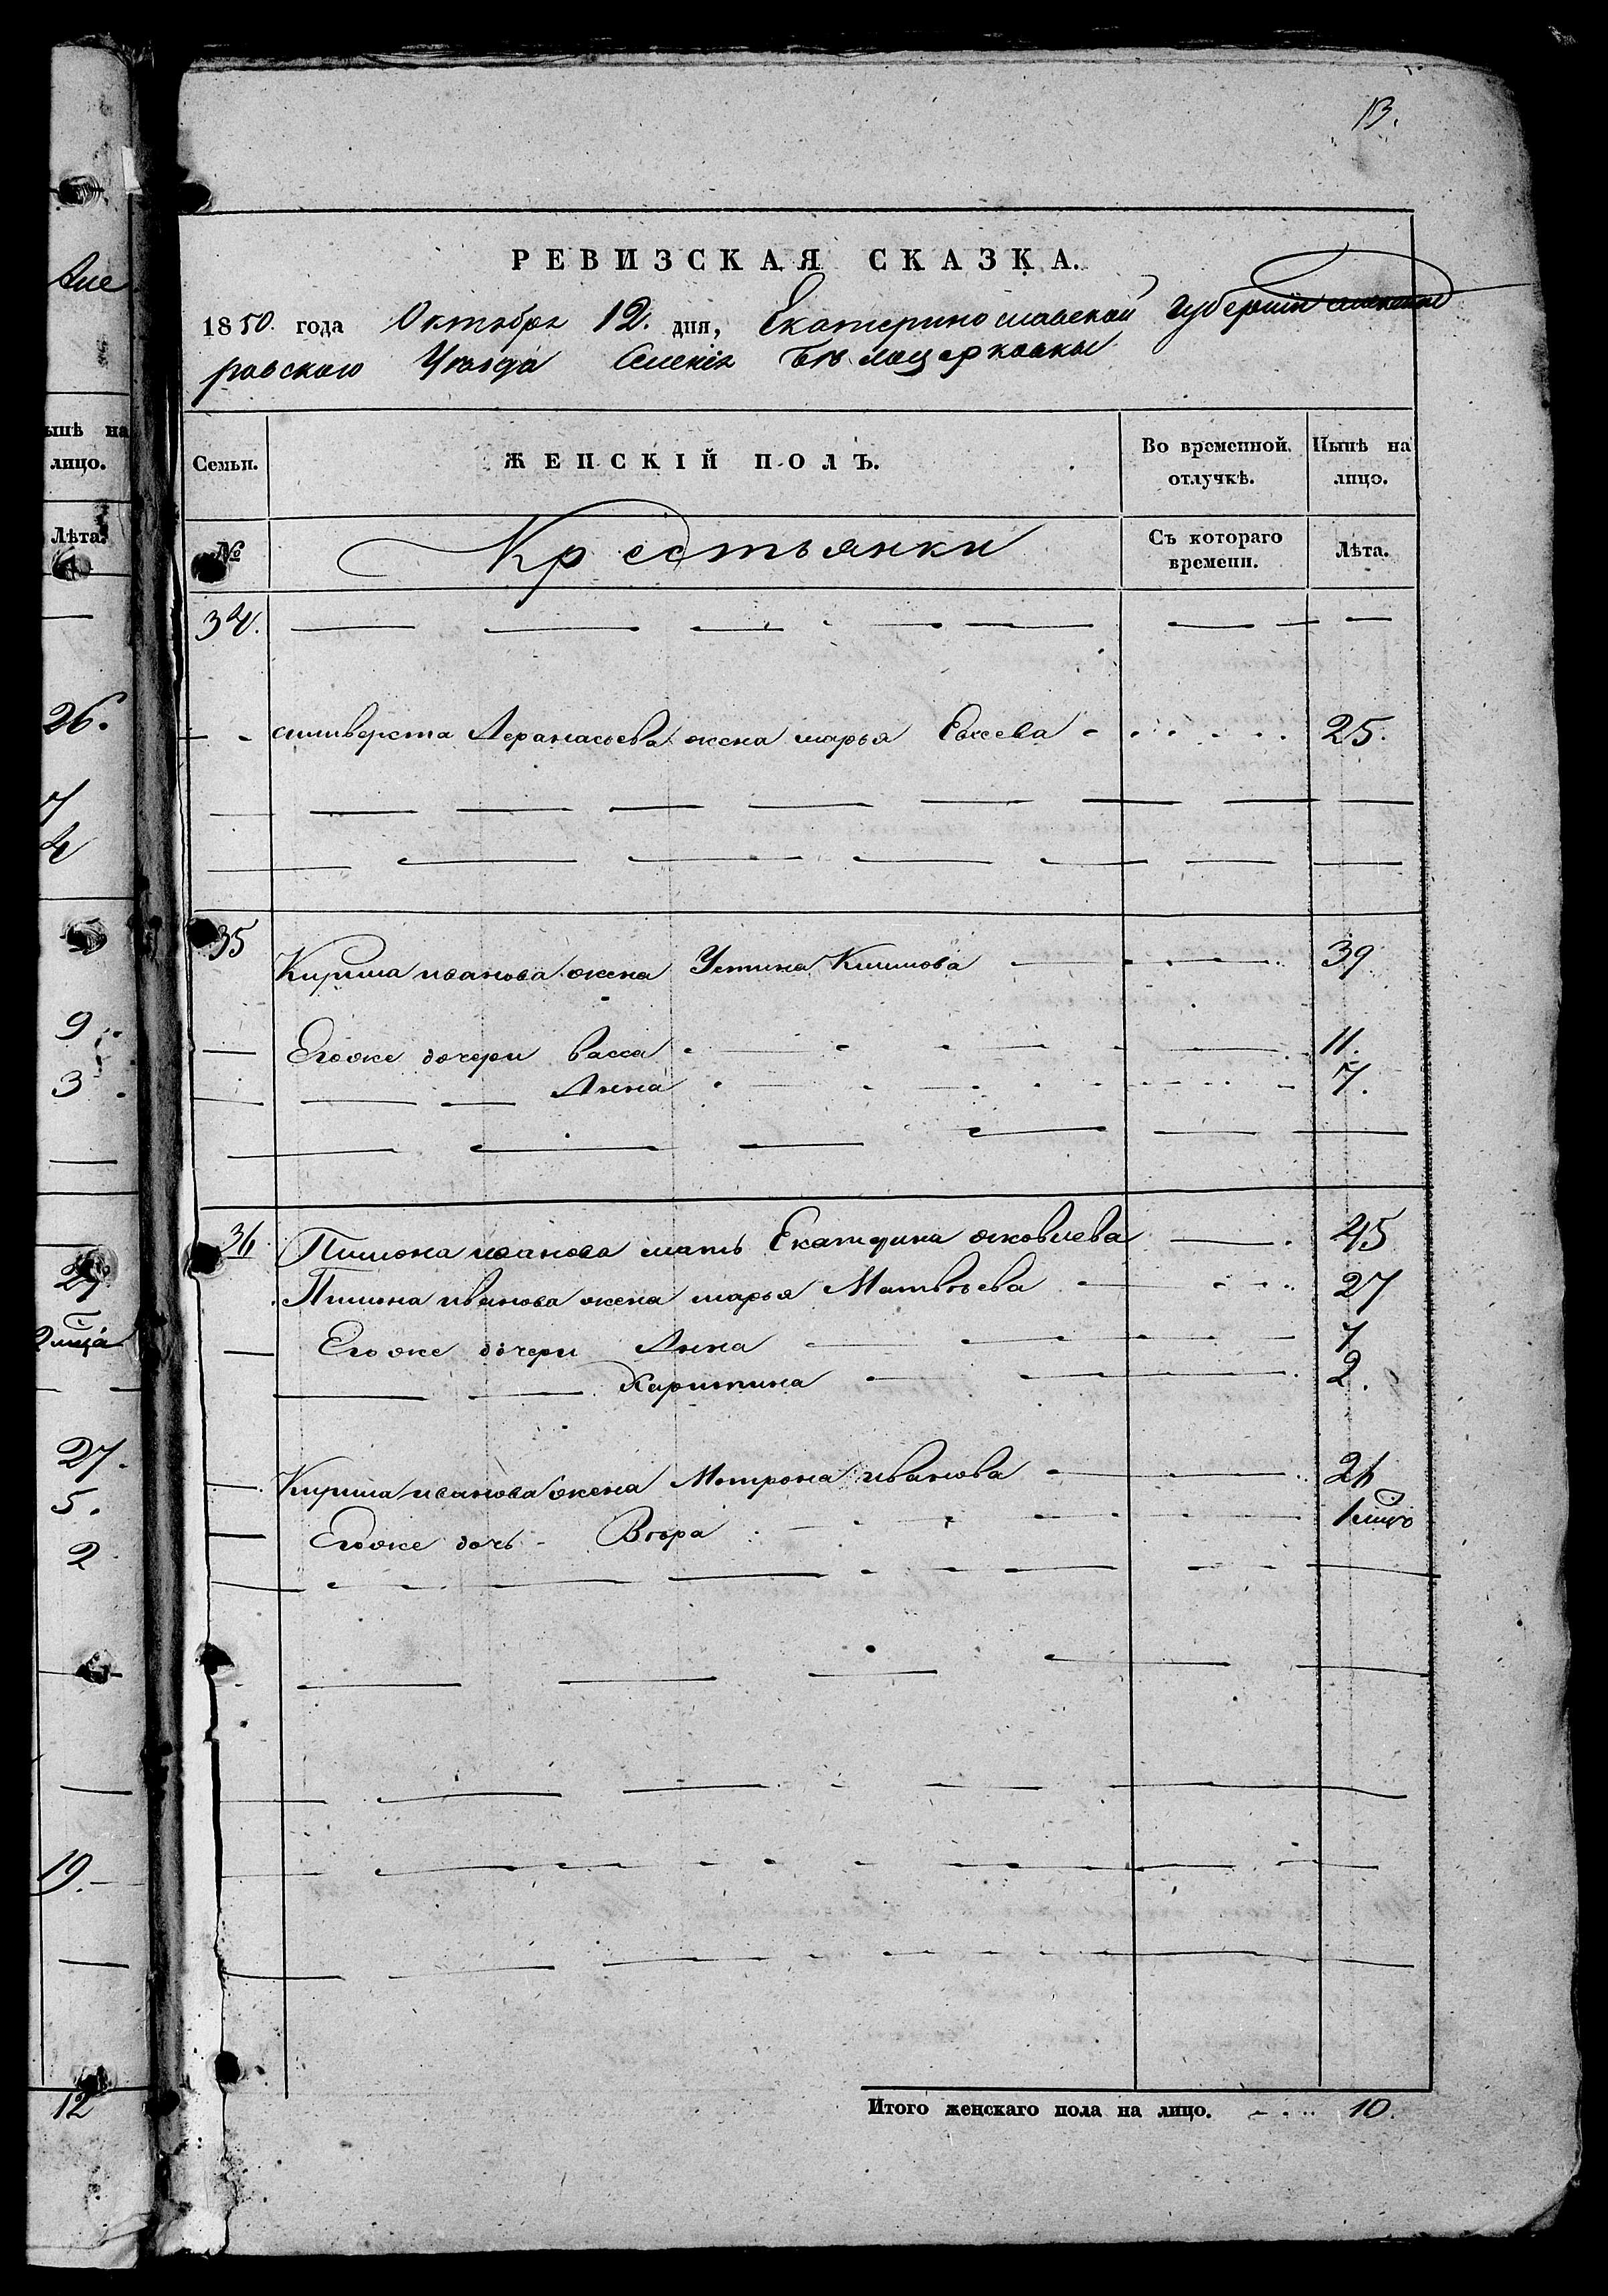 13.
РЕВИЗСКАЯ СКАЗКА.
1850. года Октября 12. дня, Екатеринославской Губернии Александ
ровского Уѣзда Селенія Бѣлоцерковки
Семьи. ЖЕНСКІЙ ПОЛЪ. Во временной отлучкѣ. Нынѣ на лицо.
№ Крестьянки Съ котораго времени. Лѣта.
34.
Силиверста Афанасьева жена марья Евсеева 25.
35 Кирила иванова жена Устина Климова 39
Егоже дочери васса 11.
Анна 7.
36 Пимона иванова мать Екатерина яковлева 45
Пимона иванова жена марья Матвѣева 27
Егоже дочери Анна 7
Харитина 2.
Кирила иванова жена Мотрона иванова 24
Егоже дочь Вѣра
Итого женскаго пола на лицо. 10.
ынѣ на
лицо.
Лѣта.
26.
7
4
9
3
27.
5.
2
19.
12